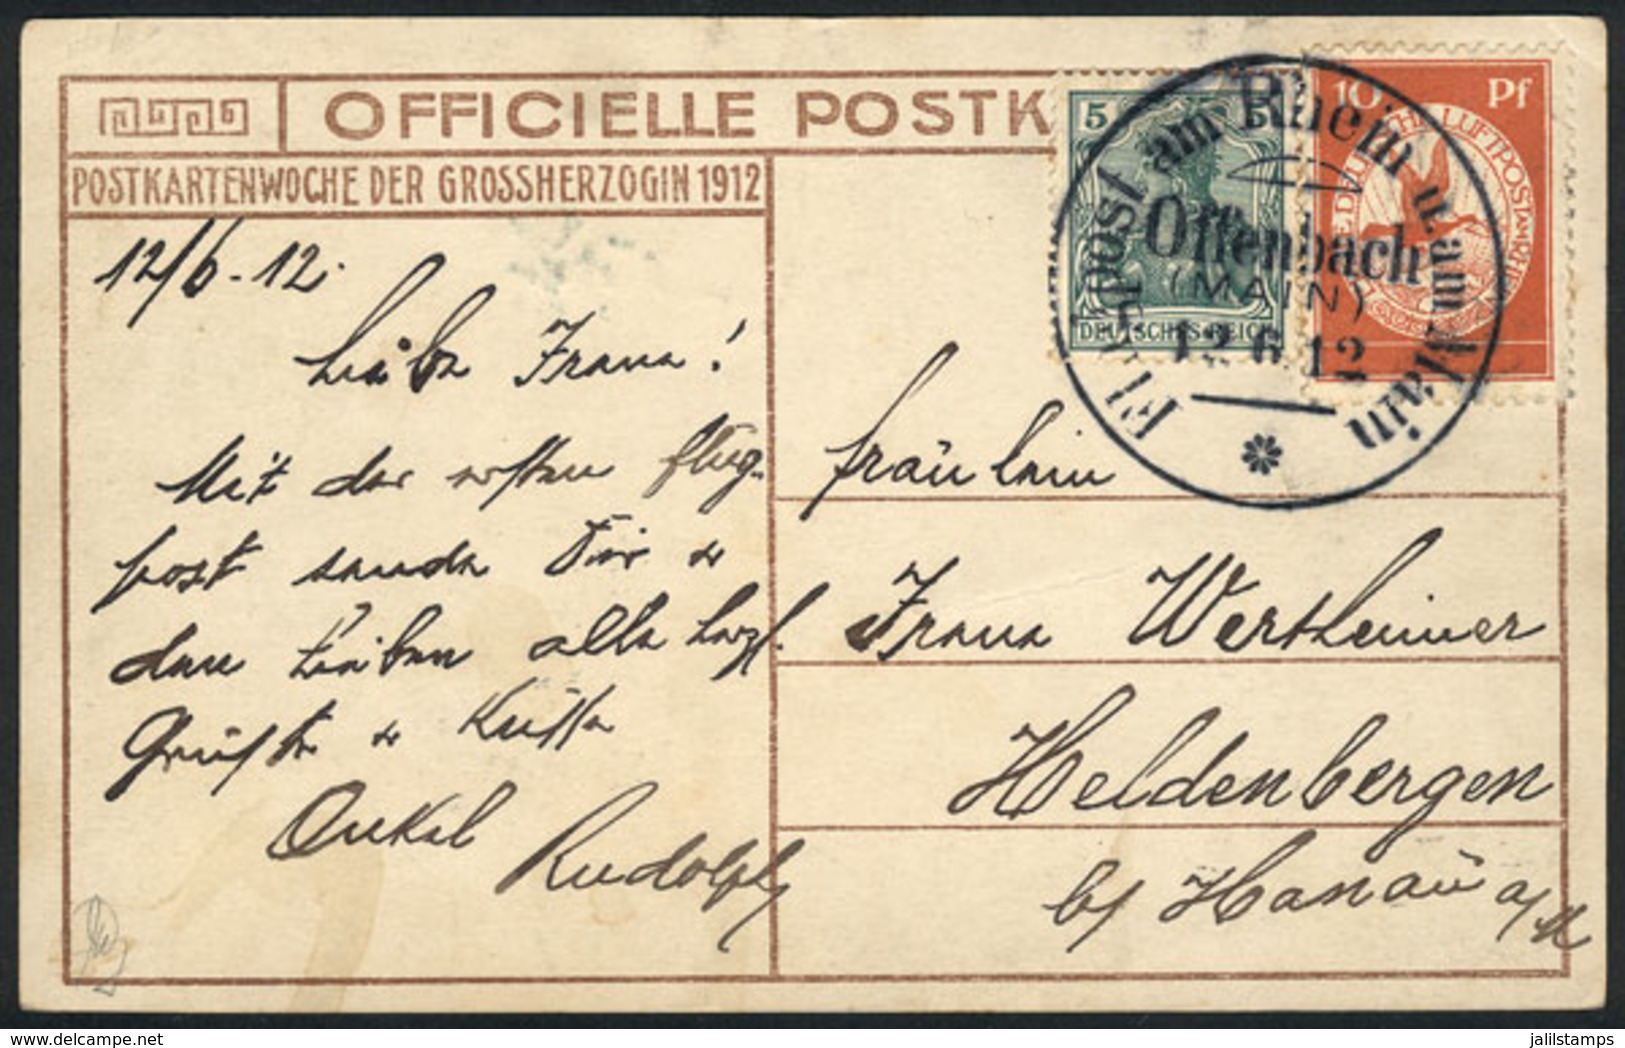 OFFICIELLE POSTK
POSTKARTENWOCHE DER GROSSHERZOGIN 1912
5
DEUTSCHES REICH
10 Pf
Flugpost am Rhein u. am Main
Offenbach
(MAIN)
12.6.12
12/6.12.
Liebe Irana!
Mit der ersten Flug-
post sende Dir u
den Lieben alle herzl.
Grüsse u Küsse
Onkel
Rudolph
Fräulein
Irana Wertheimer
Heldenbergen
b/ Hanau a/M
delcampe.net
jalilstamps